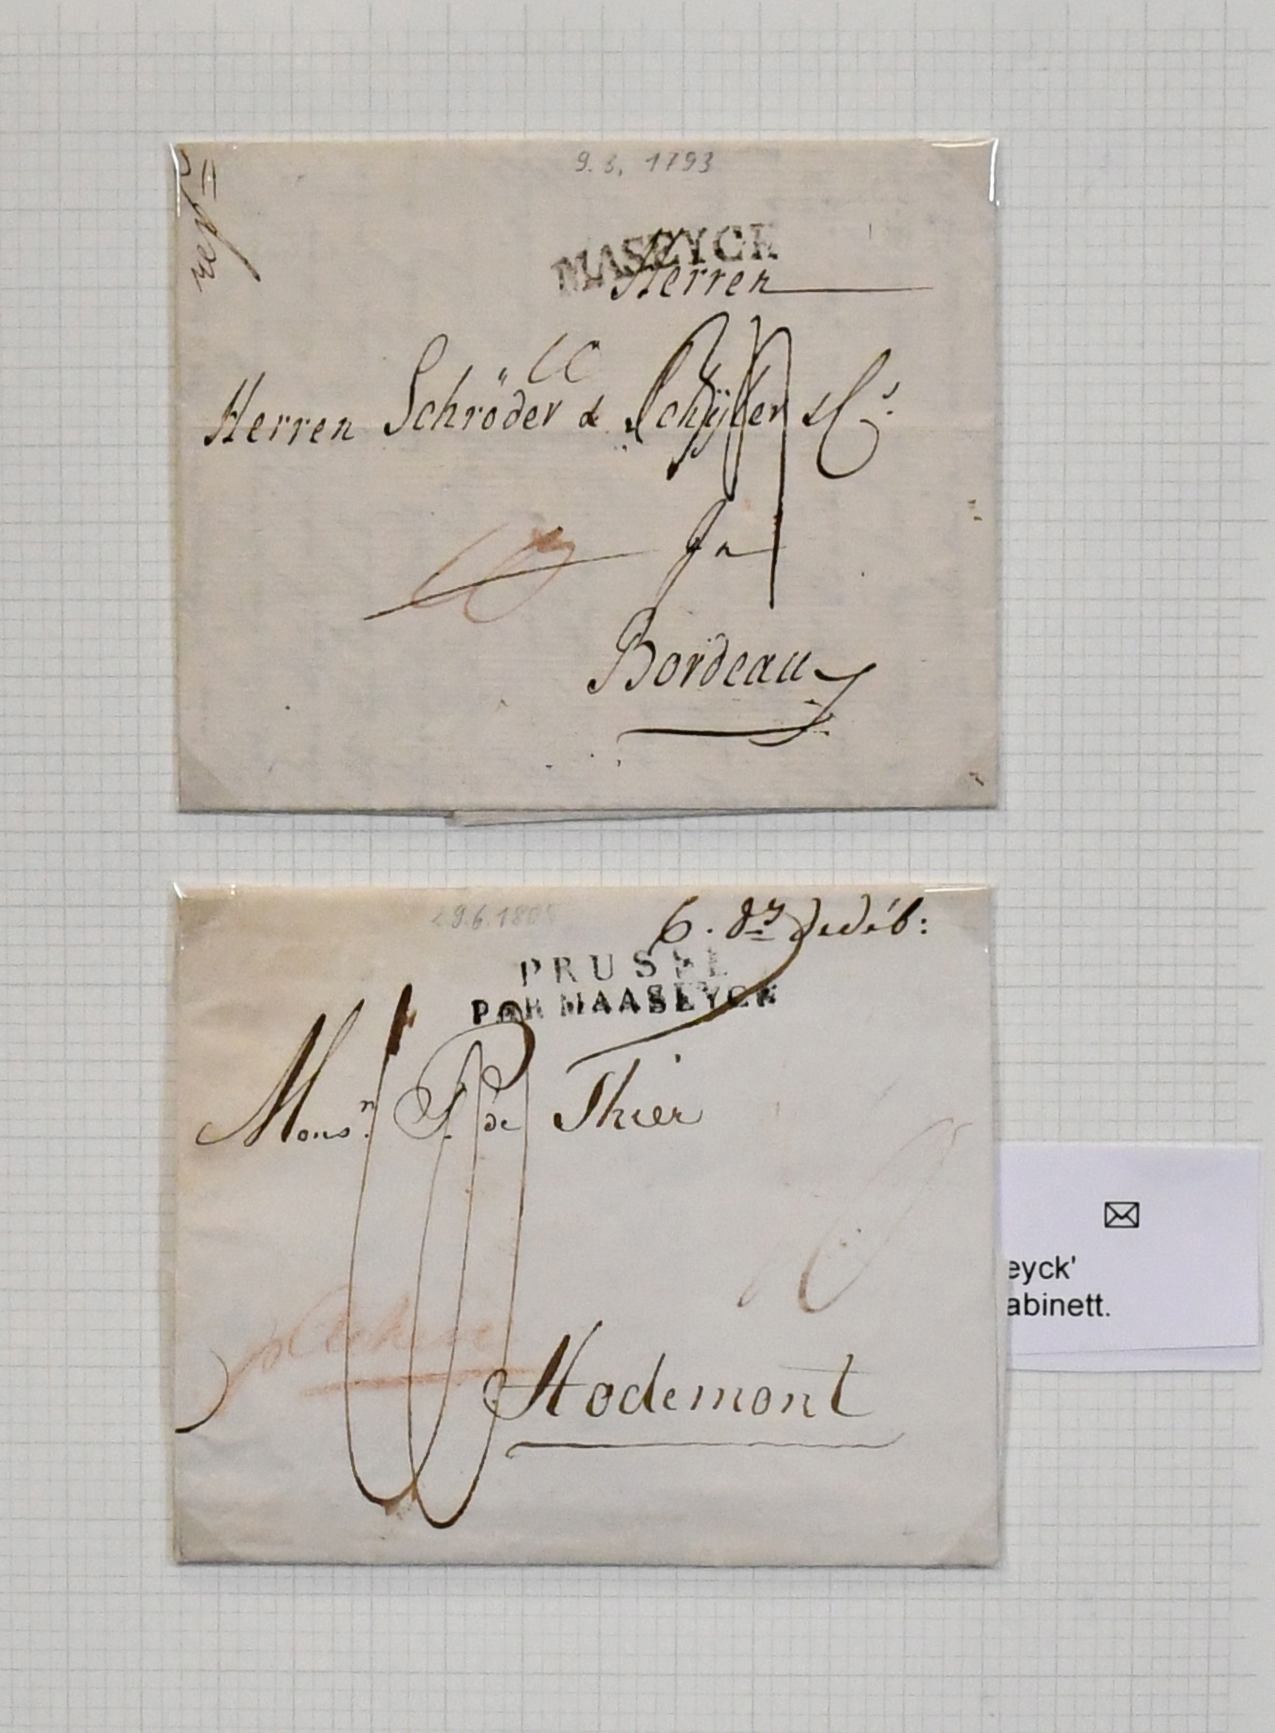 9.3.1793
MASEYCK
Herren
Herren Schröder & Schÿler & Cs.
fn
Bordeaux
29.6.1805
6. de déb:
PRUSSE
PAR MAASEYCK
Monsn. P. de Thier
Hodemont
✉
eyck'
abinett.